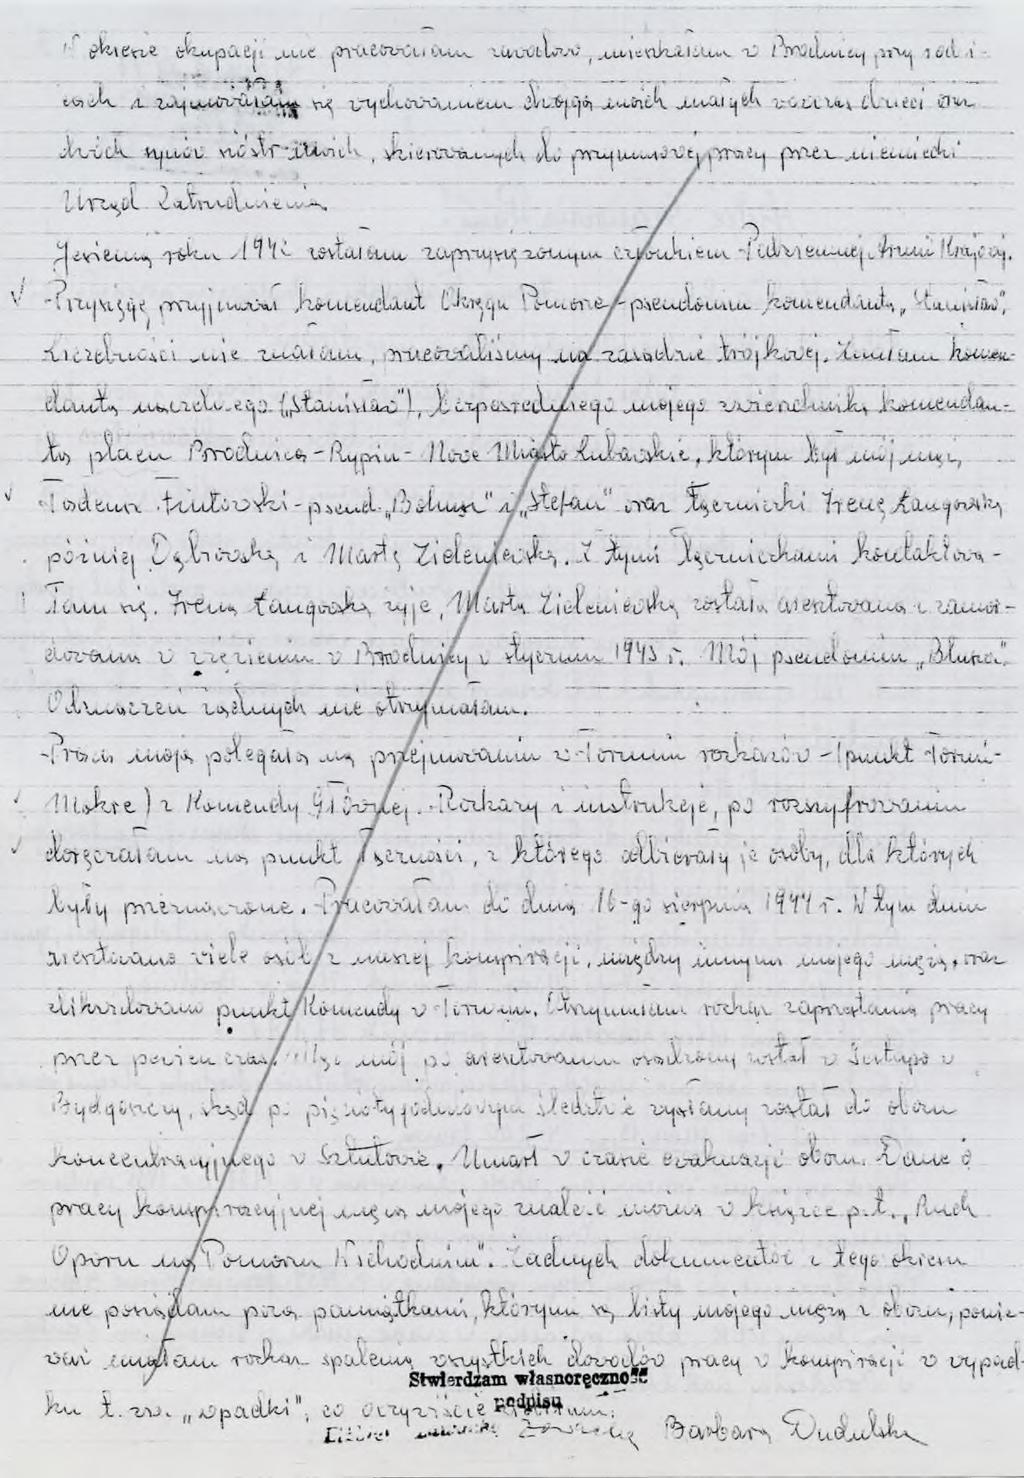 W okresie okupacji nie pracowałam zawodowo, mieszkałam w Brodnicy przy rodzi-
cach i zajmowałam się wychowaniem dwojga moich małych wówczas dzieci oraz
dwóch synów sióstr moich, skierowanych do przymusowej pracy przez niemiecki
Urząd Zatrudnienia.
Jesienią roku 1942 zostałam zaprzysiężonym członkiem Podziemnej Armii Krajowej.
Przysięgę przyjmował komendant Okręgu Pomorze - pseudonim komendanta „Stanisław".
Liczebności nie znałam, pracowaliśmy na zasadzie trójkowej. Znałam komen-
danta naczelnego („Stanisław"), bezpośredniego mojego zwierzchnika komendan-
ta placu Brodnica - Rypin - Nowe Miasto Lubawskie, którym był mój mąż,
Tadeusz - pseud. „Bohusz" i „Stefan" oraz łączniczki Irenę Łangowską
później Dąbrowską i Martę Zieleniewską. Z tymi łączniczkami kontaktowa-
łam się. Irena Łangowska żyje, Marta Zieleniewska została aresztowana i zamor-
dowana w więzieniu w Brodnicy w styczniu 1945 r. Mój pseudonim „Bluza".
Odznaczeń żadnych nie otrzymałam.
Praca moja polegała na przejmowaniu w Toruniu rozkazów - (punkt Toruń-
Mokre) z Komendy Głównej. Rozkazy i instrukcje, po rozszyfrowaniu
doręczałam na punkt łączności, z którego odbierały je osoby, dla których
były przeznaczone. Pracowałam do dnia 16-go sierpnia 1944 r. W tym dniu
aresztowano wiele osób z naszej konspiracji, między innymi mojego męża, oraz
zlikwidowano punkt Komendy w Toruniu. Otrzymałam rozkaz zaprzestania pracy
przez pewien czas. Mąż mój po aresztowaniu osadzony został w Gestapo w
Bydgoszczy, skąd po pięciotygodniowym śledztwie wysłany został do obozu
koncentracyjnego w Sztutowie. Umarł w czasie ewakuacji obozu. Dane o
pracy konspiracyjnej męża mojego znaleźć można w książce p.t. „Ruch
Oporu na Pomorzu Wschodnim". Żadnych dokumentów z tego okresu
nie posiadam poza pamiątkami, którymi są listy mojego męża z obozu, ponie-
waż miałam rozkaz spalenia wszystkich dowodów pracy w konspiracji w wypad-
Stwierdzam własnoręczność
podpisu
ku t. zw. „wpadki", co oczywiście
Barbara Dudulska